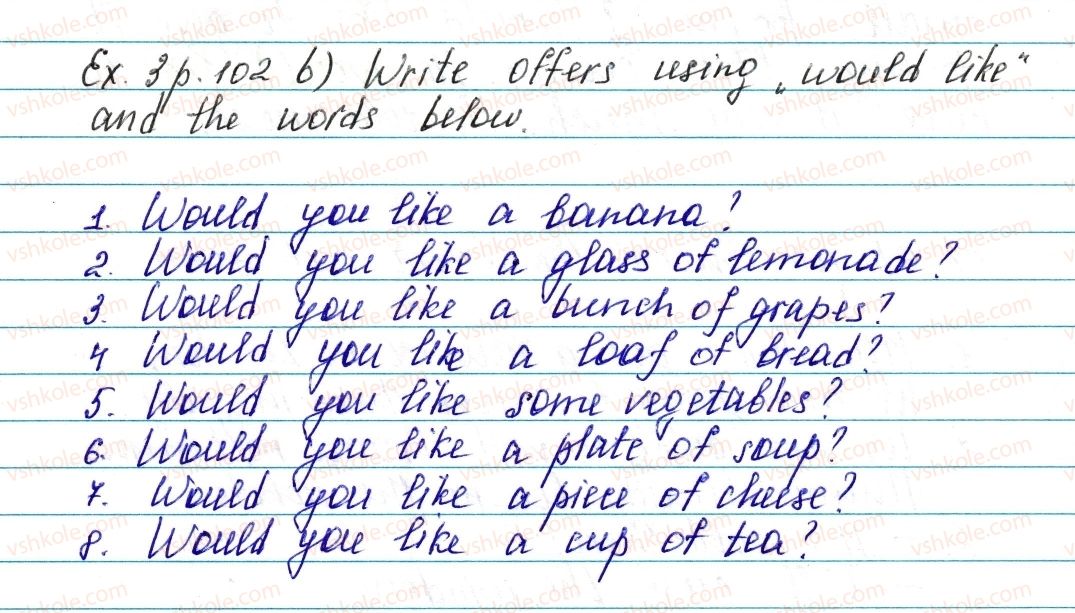 Ex. 3 p. 102 b) Write offers using „would like“
and the words below.
1. Would you like a banana?
2. Would you like a glass of lemonade?
3. Would you like a bunch of grapes?
4 Would you like a loaf of bread?
5. Would you like some vegetables?
6. Would you like a plate of soup?
7. Would you like a piece of cheese?
8. Would you like a cup of tea?